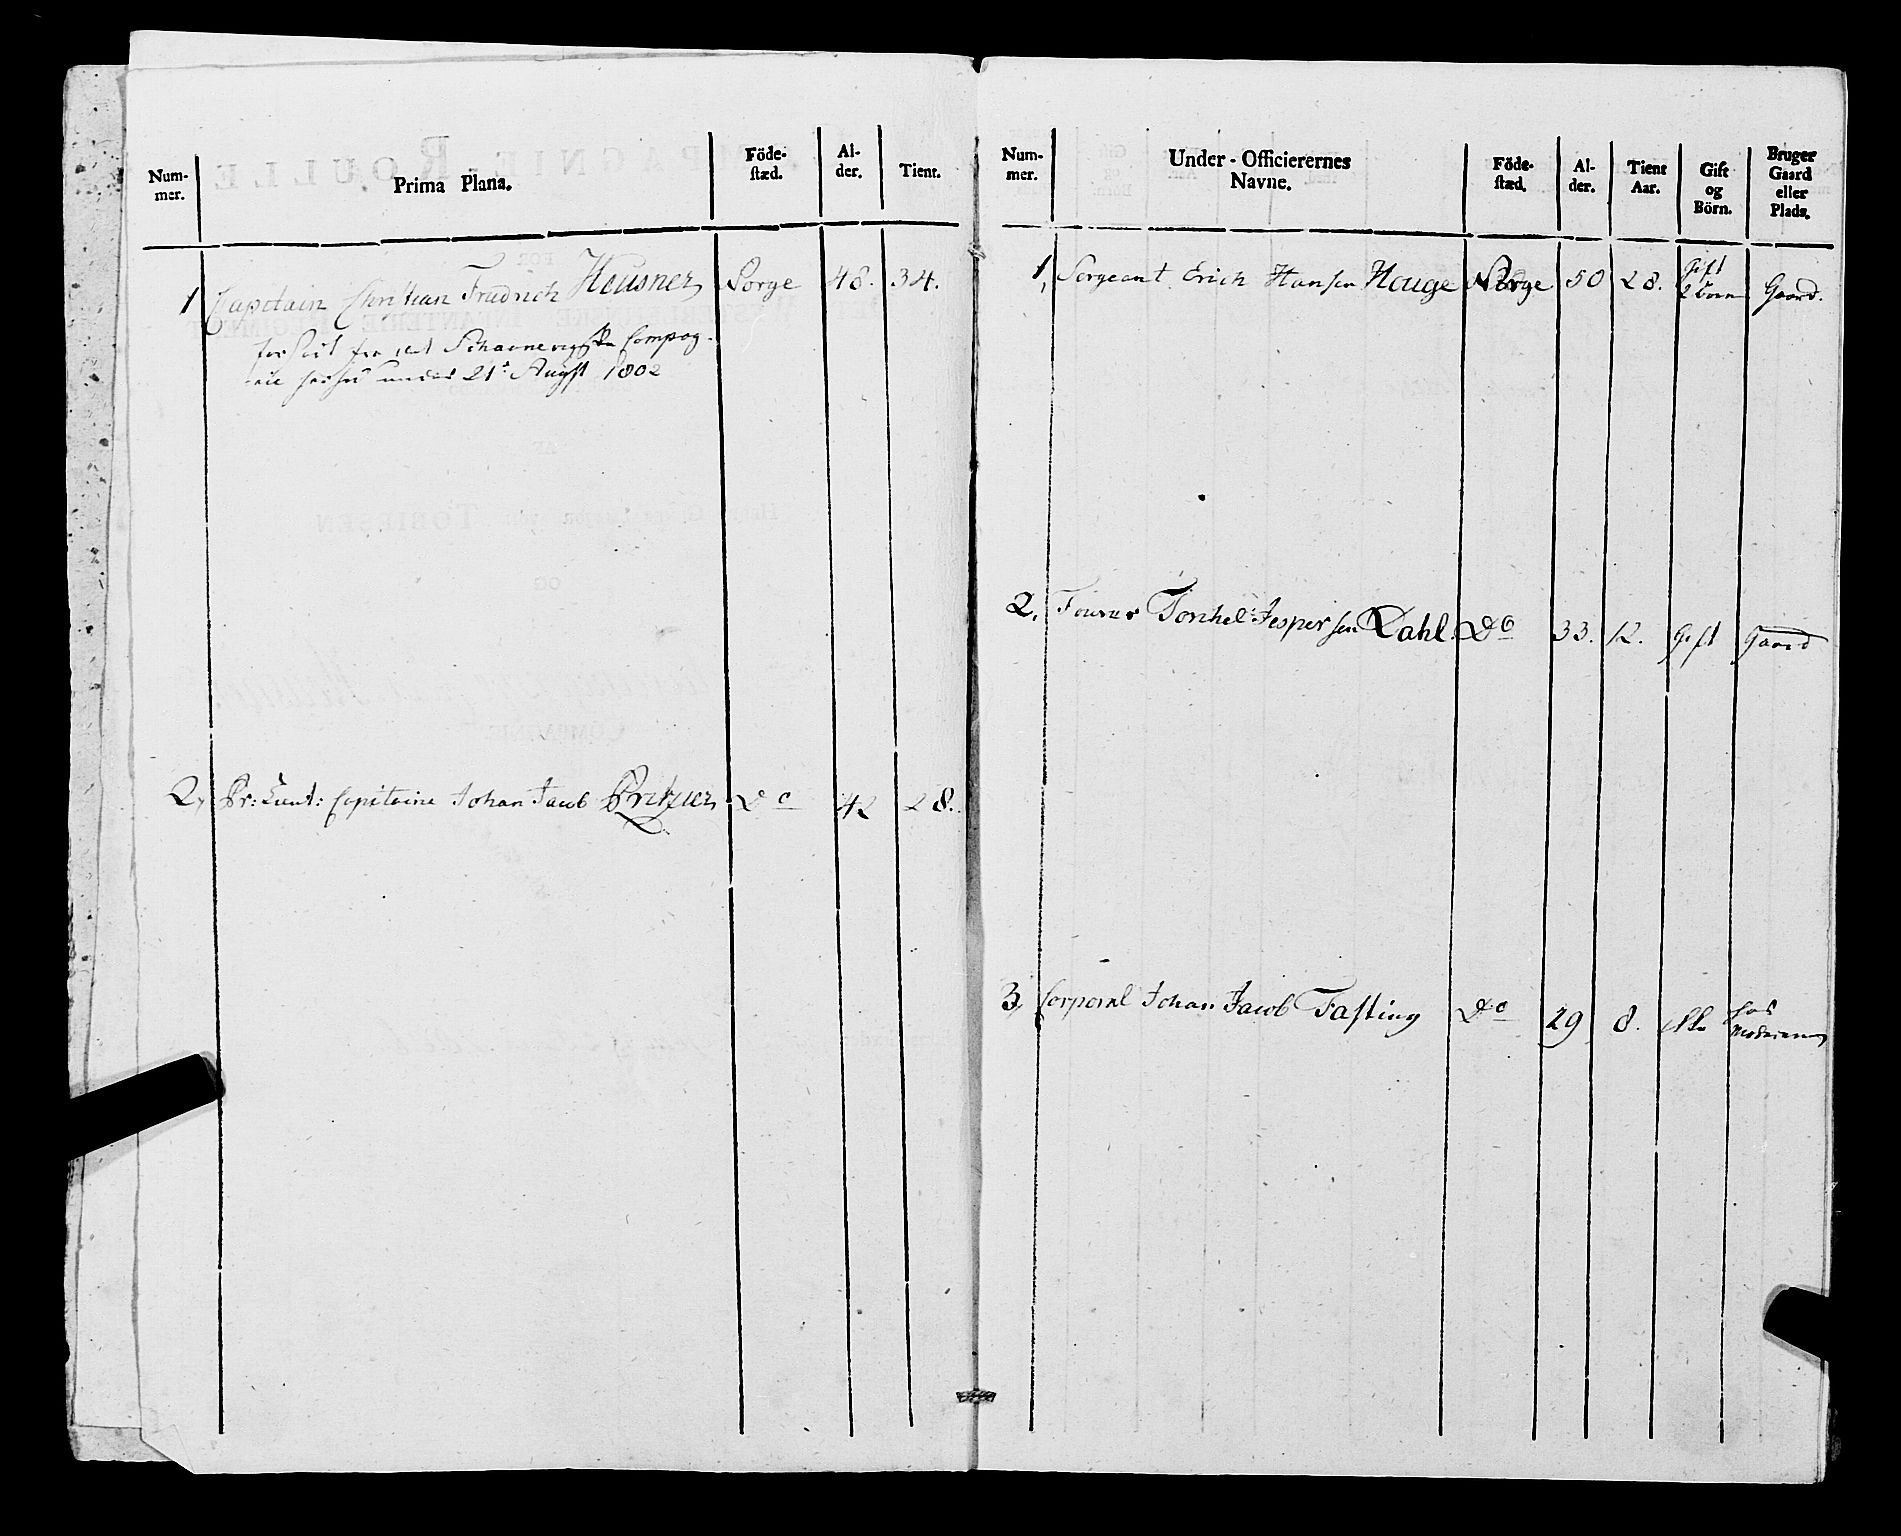 Num-
mer.
Prima Plana.
Föde-
stæd.
Al-
der.
Tient.
1 Capitain Christian Fredrich Heusner Norge 48. 34.
forsat fra det Schaunevigske Compag-
nie under 21. Augst 1802
2, Pr: Lieut: Capitaine Johan Jacob Do 42 28.
Num-
mer.
Under-Officierernes
Navne.
Föde-
stæd.
Al-
der.
Tient
Aar.
Gift
og
Börn.
Bruger
Gaard
eller
Plads.
1, Sergeant Erich Hansen Houge Norge 50 28. Gift
2 Börn Gaard.
2, Fourer Torchel Jespersen Dahl Do 33. 12. Gift Gaard
3, Corporal Johan Jacob Fasting Do 29 8. hos
Moderen